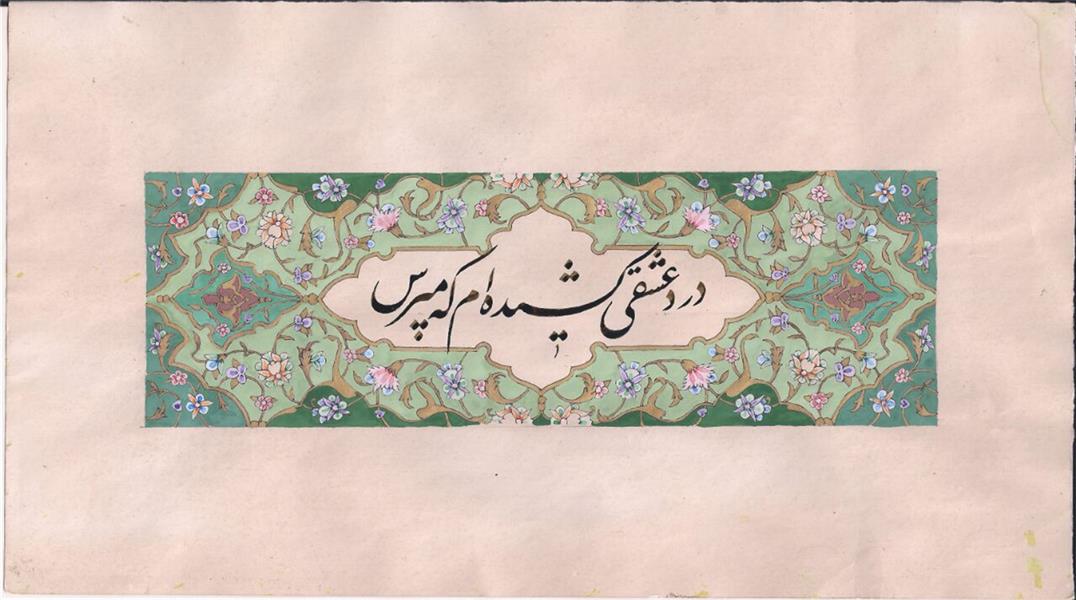 درد عشقی کشیده‌ام که مپرس